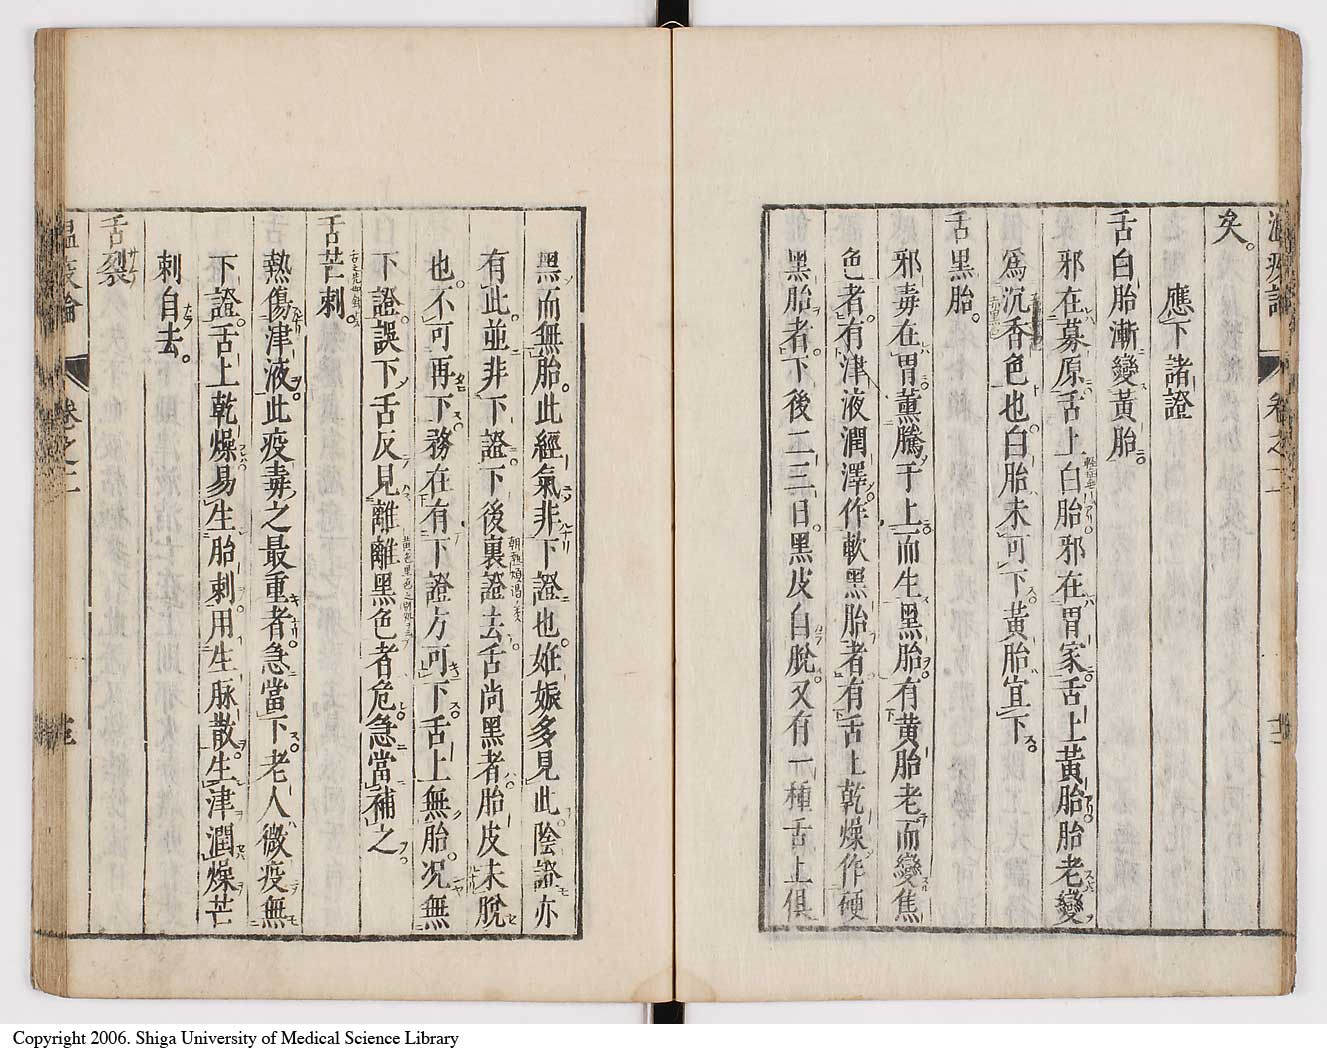 矣。
應下諸證
舌白胎漸變黃胎。
邪在募原舌上白胎邪在胃家舌上黃胎胎老變
為沉香色也白胎未可下黃胎宜下
舌黑胎。
邪毒在胃薰騰于上而生黑胎有黃胎老而變焦
色者有津液潤澤作軟黑胎者有舌上乾燥作硬
黑胎者下後二三日黑皮自脫又有一種舌上俱
黑而無胎。此經氣非下證也。妊娠多見此陰證亦
有此並非下證下後裏證去舌尚黑者胎皮未脫
也不可再下務在有下證方可下舌上無胎况無
下證誤下舌反見離離黑色者危急當補之
舌芒刺。
熱傷津液此疫毒之最重者急當下老人微疫無
下證舌上乾燥易生胎刺用生脉散生津潤燥芒
刺自去。
舌裂
卷之二
Copyright 2006. Shiga University of Medical Science Library